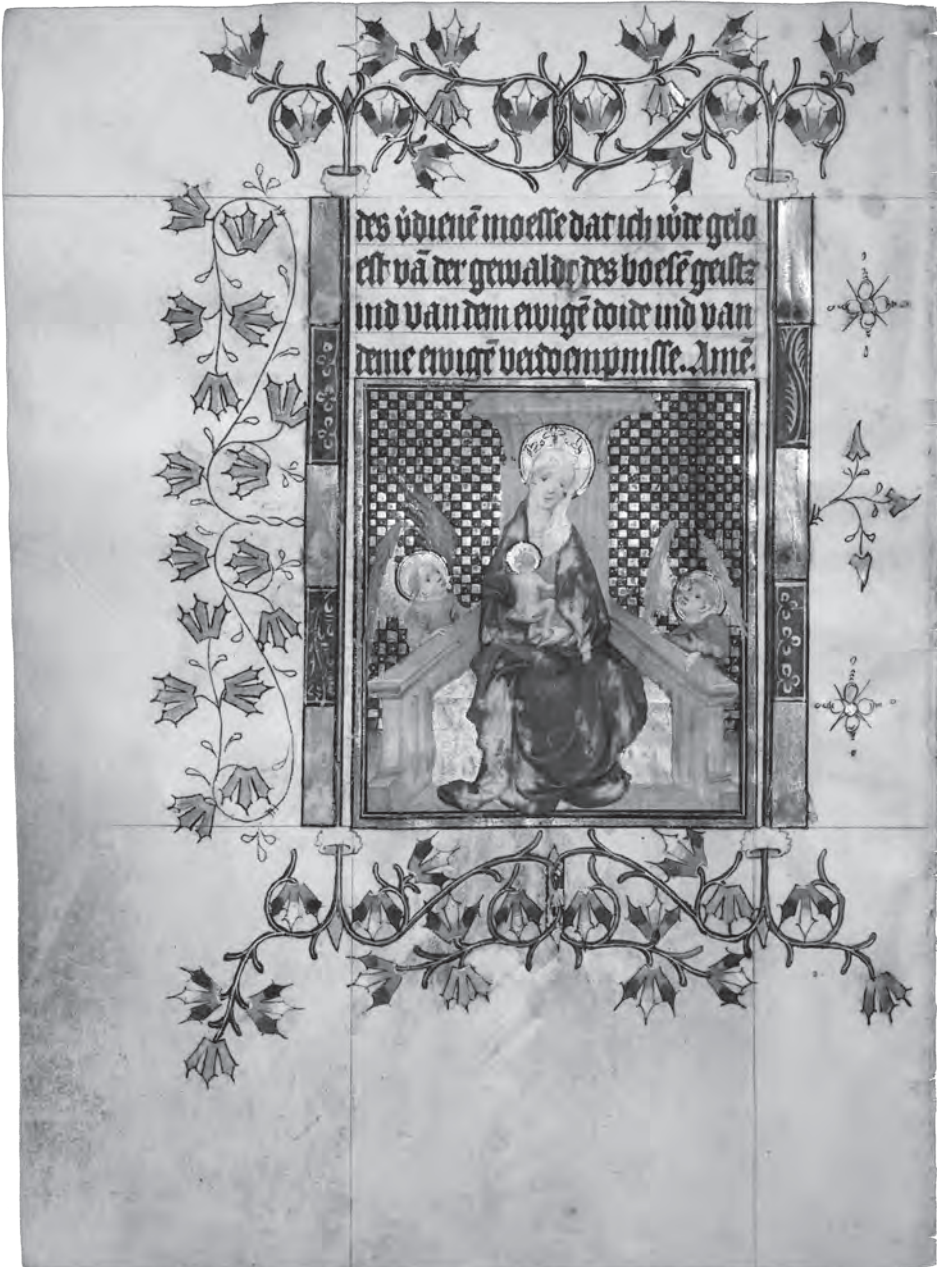 des v̊dienē moesse dat ich v̊de gelo
est vā der gewalde des boesē geistz
ind van dem ewigē doide ind van
deme ewigē verdompnisse. Amē.